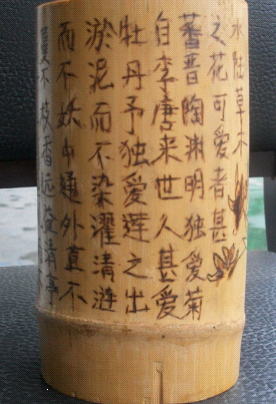 水陆草木
之花可爱者甚
蕃晋陶渊明独爱菊
自李唐来世人甚爱
牡丹予独爱莲之出
淤泥而不染濯清涟
而不妖中通外直不
蔓不枝香远益清亭